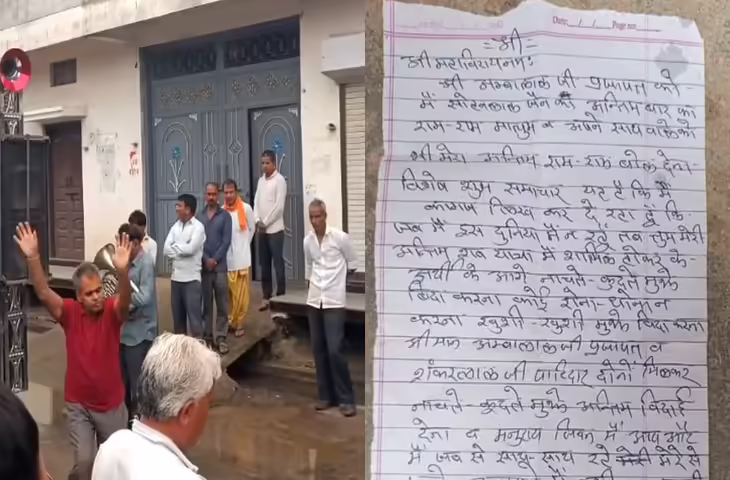 Date: / / Page no:
=श्री=
श्री महाविरायनम:
श्री अम्बालाल जी प्रजापत को
मैं सोहनलाल जैन का अन्तिम बार का
राम-राम मालुम व अपने साथ वाले को
भी मेरा अन्तिम राम-राम बोल देना
विशेष शुभ समाचार यह है कि मैं
कागज लिख कर दे रहा हूँ कि
जब मैं इस दुनिया में न रहुं तब तुम मेरी
अन्तिम शव यात्रा में शामिल होकर के
अर्थी के आगे नाचते-कुदते मुझे
बिदा करना कोई रोना-धोना न
करना खुशी-खुशी मुझे बिदा करना
श्रीमान अम्बालालजी प्रजापत व
शंकरलाल जी पाटिदार दोनों मिलकर
नाचते-कुदते मुझे अन्तिम विदाई
देना व मनुष्य जिवन में आप और
मैं जब से साथ-साथ रहे मेरे से